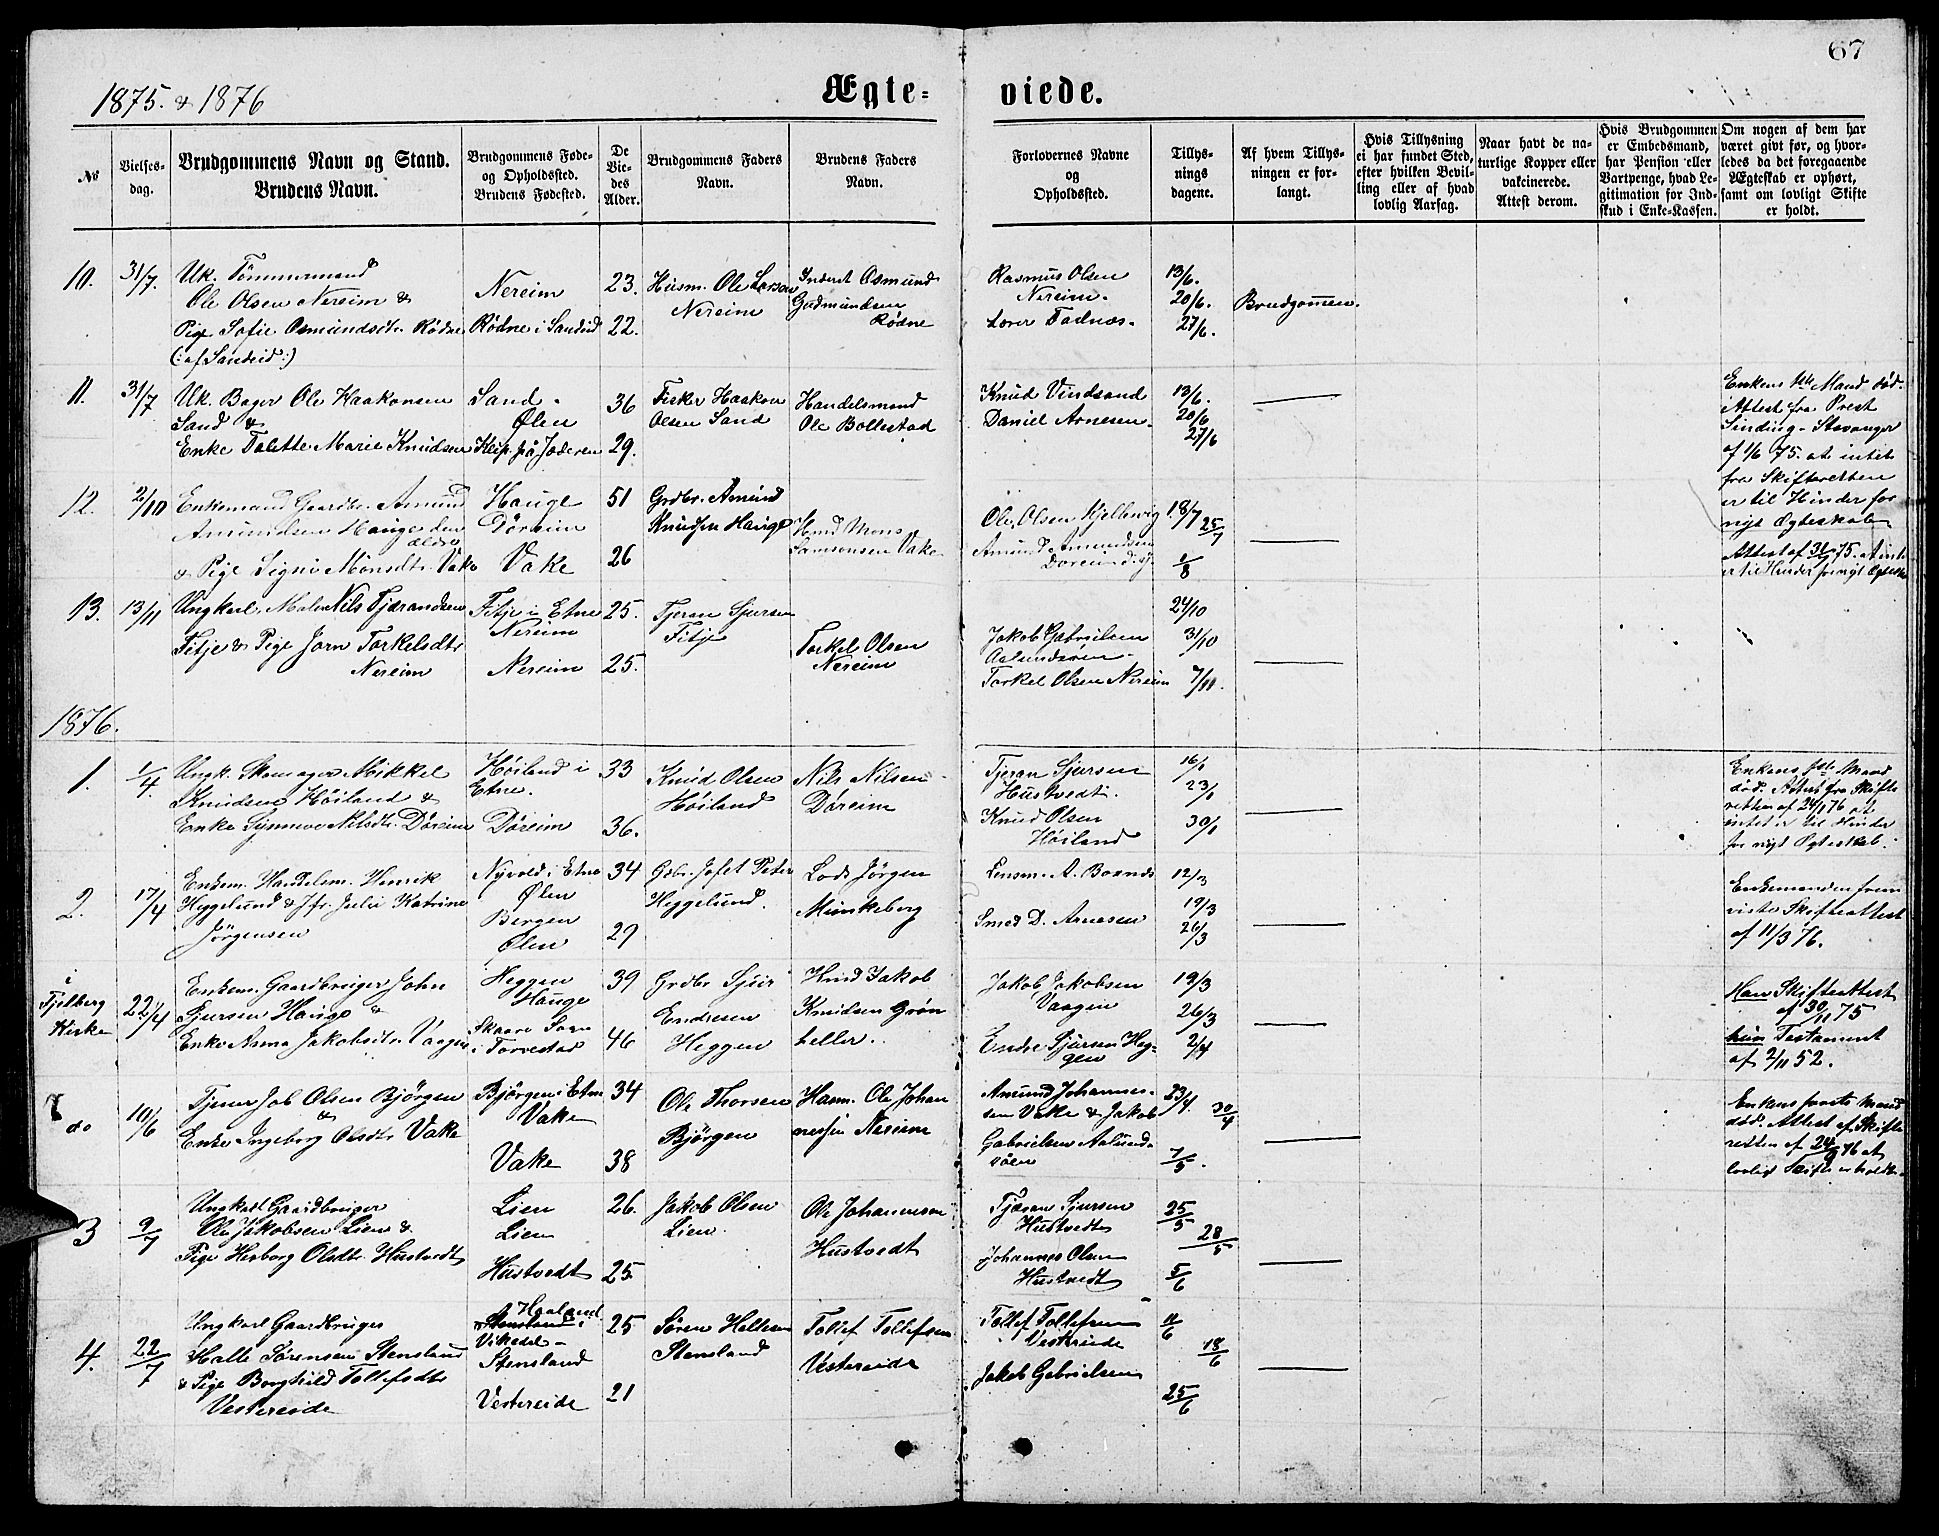 67
1875. & 1876
Ægte= viede.
No
Vielses-
dag.
Brudgommens Navn og Stand.
Brudens Navn.
Brudgommens Føde-
og Opholdssted.
Brudens Fødested.
De
Vie-
des
Alder.
Brudgommens Faders
Navn.
Brudens Faders
Navn.
Forlovernes Navne
og
Opholdssted.
Tillys-
nings
dagene.
Af hvem Tillys-
ningen er for-
langt.
Hvis Tillysning
ei har fundet Sted,
efter hvilken Bevil-
ling eller af hvad
lovlig Aarsag.
Naar havt de na-
turlige Kopper eller
vakcinerede.
Attest derom.
Hvis Brudgommen
er Embedsmand,
har Pension eller
Vartpenge, hvad Le-
gitimation for Ind-
skud i Enke-Kassen.
Om nogen af dem har
været givt før, og hvor-
ledes da det foregaaende
Ægteskab er ophørt,
samt om lovligt Skifte
er holdt.
10.
31/7.
Uk. Tømmermand
Ole Olsen Nereim &
Pige Sofie Osmundsdtr. Rødne
(: af Sandeid :)
Nereim
Rødne i Sandeid
23.
22.
Husm. Ole Larsen
Nereim
Inderst Osmund
Gudmundsen
Rødne
Rasmus Olsen
Nereim.
Lover Tadnæs.
13/6.
20/6.
27/6.
Brudgommen.
11.
31/7
Uk. Bager Ole Haakonsen
Sand &
Enke Talette Marie Knudsen
Sand.
Ølen
Klep på Jæderen
36
29.
Fisker Haakon
Olsen Sand
Handelsmand
Ole Bollestad
Knud Vindsand
Daniel Arnesen.
13/6.
20/6
27/6
Enkens 1ste Mand død.
Attest fra Prest
Sinding - Stavanger
af 1/6 75. at intet
fra Skifteretten
er til Hinder for
nyt Ægteskab
12.
2/10
Enkemand Gaardbr. Amund
Amundsen Hauge den
ældre
& Pige Signi Monsdtr. Vake
Hauge
Døreim
Vake
51
26
Grdbr. Amund
Knudsen Hauge
Hmd Mons
Samsonsen Vake
Ole Olsen Kjellevig
Amund Amundsen
Døreim d. y.
18/7
25/7
1/8
Attest af 31/7 75. at intet
er til Hinder for nyt Ægtesk.
13.
13/11
Ungkarl. Maler Nils Tjærandsen
Fitje & Pige Jorn Torkelsdtr
Nereim
Fitje i Etne
Nereim
Nereim
25.
25.
Tjeran Sjursen
Fitje
Torkel Olsen
Nereim
Jakob Gabrielsen
Aalundsøen.
Torkel Olsen Nereim
24/10
31/10
7/11.
1876.
1.
1/4.
Ungk. Skomager Mikkel
Knudsen Høiland &
Enke Synnove Nilsdtr. Døreim
Høiland i
Etne.
Døreim
33
36.
Knud Olsen
Høiland
Nils Nilsen
Døreim
Tjeran Sjursen
Hustvedt.
Knud Olsen
Høiland
16/1
23/1
30/1
Enkens 1ste Mand
død. Attest fra Skifte
retten af 24/1 76 at
intet er til Hinder
for nyt Ægteskab.
2.
17/4
Enkem. Handelsm. Henrik
Heggelund & Jfr. Julie Katrine
Jørgensen
Nyvold i Etne
Ølen
Bergen
Ølen
34
29
Gbr. Jafet Peter
Heggelund.
Lods Jørgen
Munkeberg
Lensm. A. Boknes
Smed D. Arnesen
12/3
19/3
26/3
Enkemanden frem
viste Skifteattest
af 11/3 76.
i
Fjelberg
Kirke
22/4
Enkem. Gaardbruger John
Sjursen Hauge &
Enke Anna Jakobsdtr. Vaagen
Heggen
Hauge
Skaare Sogn
i Torvestad
39
46
Grdbr Sjur
Endresen
Heggen
Hmd Jakob
Knudsen Grøn
heller.
Jakob Jakobsen
Vaagen
Endre Sjursen Heg-
gen
19/3
26/3
2/4
Han Skifteattest
af 30/11 75
hun Testament
af 2/11 52.
do
10/6
Tjener Job Olsen Bjørgen
&
Enke Ingeborg Olsdtr. Vake
Bjørgen i Etne
Vake
Vake
34
38
Ole Thorsen
Bjørgen
Hasm. Ole Johan
nessen Nereim
Amund Johannes-
sen Vake & Jakob
Gabrielsen Aalund-
søen
23/4.
30/4
7/5.
Enkens første Mand
død. Attest af Skifte
retten af 24/9 76 at
lovligt Skifte er holdt.
3
9/7
Ungkarl Gaardbruger
Ole Jakobsen Lien &
Pige Herborg Olsdtr. Hustvedt
Lien
Lien
Hustvedt
26.
25.
Jakob Olsen
Lien.
Ole Johannesen
Hustvedt
Tjæran Sjursen
Hustvedt
Johannes Olsen
Hustvedt
25/5
28/5
5/6
4.
22/7
Ungkarl Gaardbruger
Halle Sørensen Stensland
& Pige Borghild Tollefsdtr
Vestereide
Haaland
Stensland i
Vikedal
Stensland
Vestereide
25
21
Søren Hallesen
Stensland
Tollef Tollefsen
Vestereide
Tollef Tollefsen
Vestereide
Jakob Gabrielsen
11/6
18/6
25/6